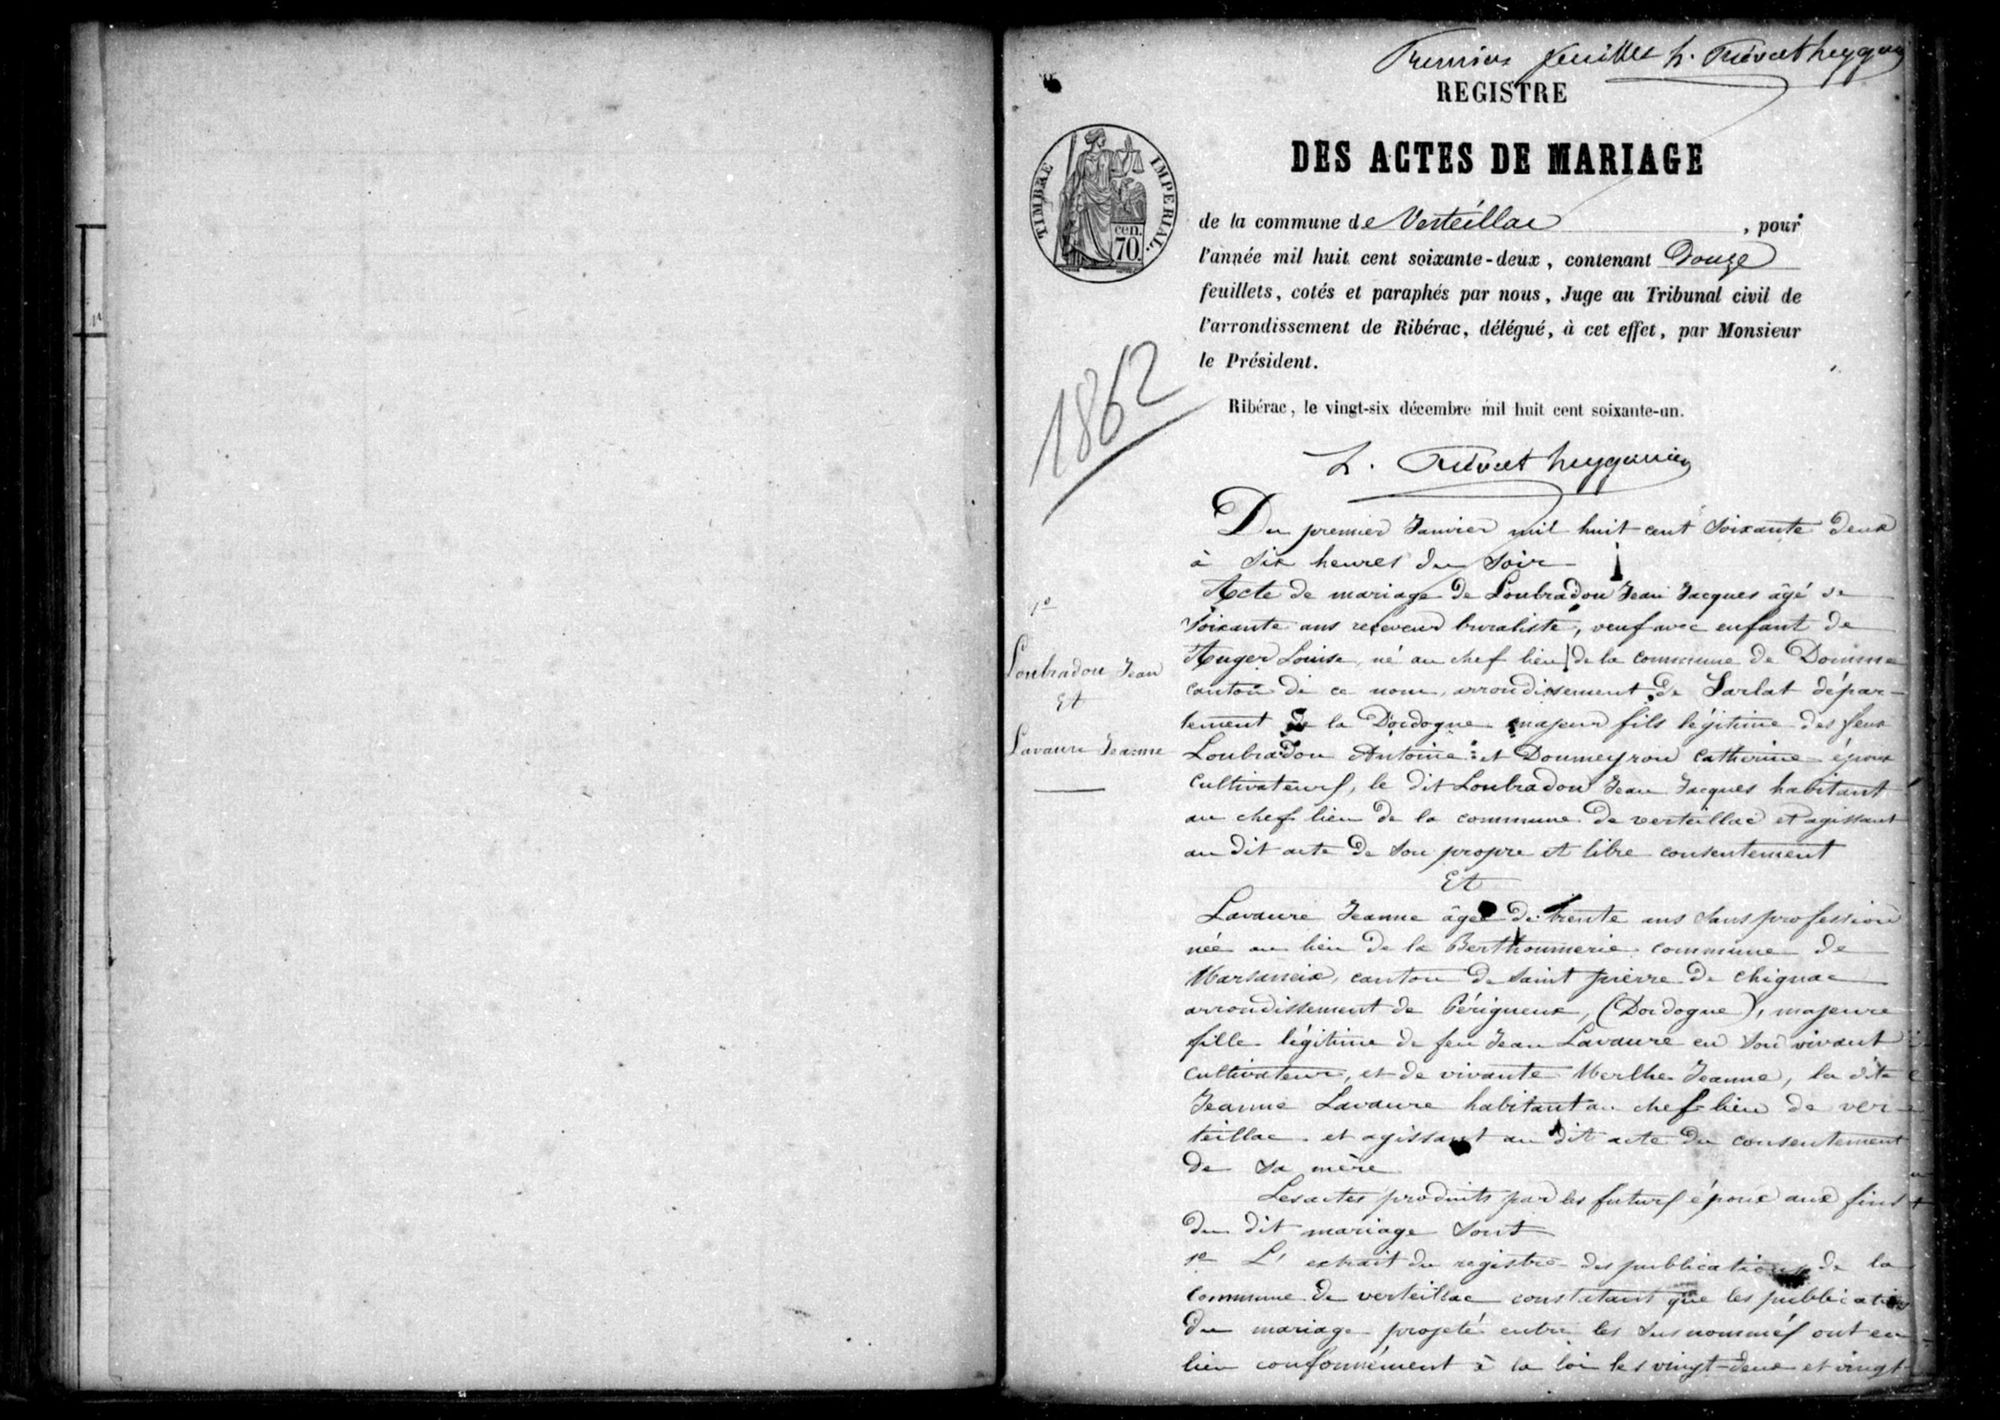 Premier feuillet
REGISTRE
DES ACTES DE MARIAGE
TIMBRE IMPERIAL.
cen.
70.
de la commune de Verteillac, pour
l'année mil huit cent soixante-deux, contenant Douze
feuillets, cotés et paraphés par nous, Juge au Tribunal civil de
l'arrondissement de Ribérac, délégué, à cet effet, par Monsieur
le Président.
1862
Ribérac, le vingt-six décembre mil huit cent soixante-un.
Du premier Janvier mil huit cent soixante deux
à six heures du soir
1º
Loubradou Jean
Et
Lavaure Jeanne
Acte de mariage de Loubradou Jean Jacques âgé de
soixante ans receveur buraliste, veuf avec enfant de
Auger Louise, né au chef lieu de la commune de Domme
canton de ce nom, arrondissement de Sarlat dépar-
tement de la Dordogne majeur fils légitime des feux
Loubradou Antoine et Doumeyrou Catherine époux
cultivateurs, le dit Loubradou Jean Jacques habitant
au chef lieu de la commune de verteillac et agissant
au dit acte de son propre et libre consentement
Et
Lavaure Jeanne âgée de trente ans sans profession
née au lieu de la Berthoumerie commune de
Marsaneix, canton de Saint pierre de chignac
arrondissement de Périgueux, (Dordogne), majeure
fille légitime de feu Jean Lavaure en son vivant
cultivateur, et de vivante Merlhe Jeanne, la dite
Jeanne Lavaure habitant au chef lieu de ver-
teillac et agissant au dit acte du consentement
de sa mère
Les actes produits par les futurs époux aux fins
du dit mariage sont
1º L'extrait du registre des publications de la
commune de verteillac constatant que les publications
du mariage projeté entre les susnommés ont eu
lieu conformément à la loi les vingt-deux et vingt-